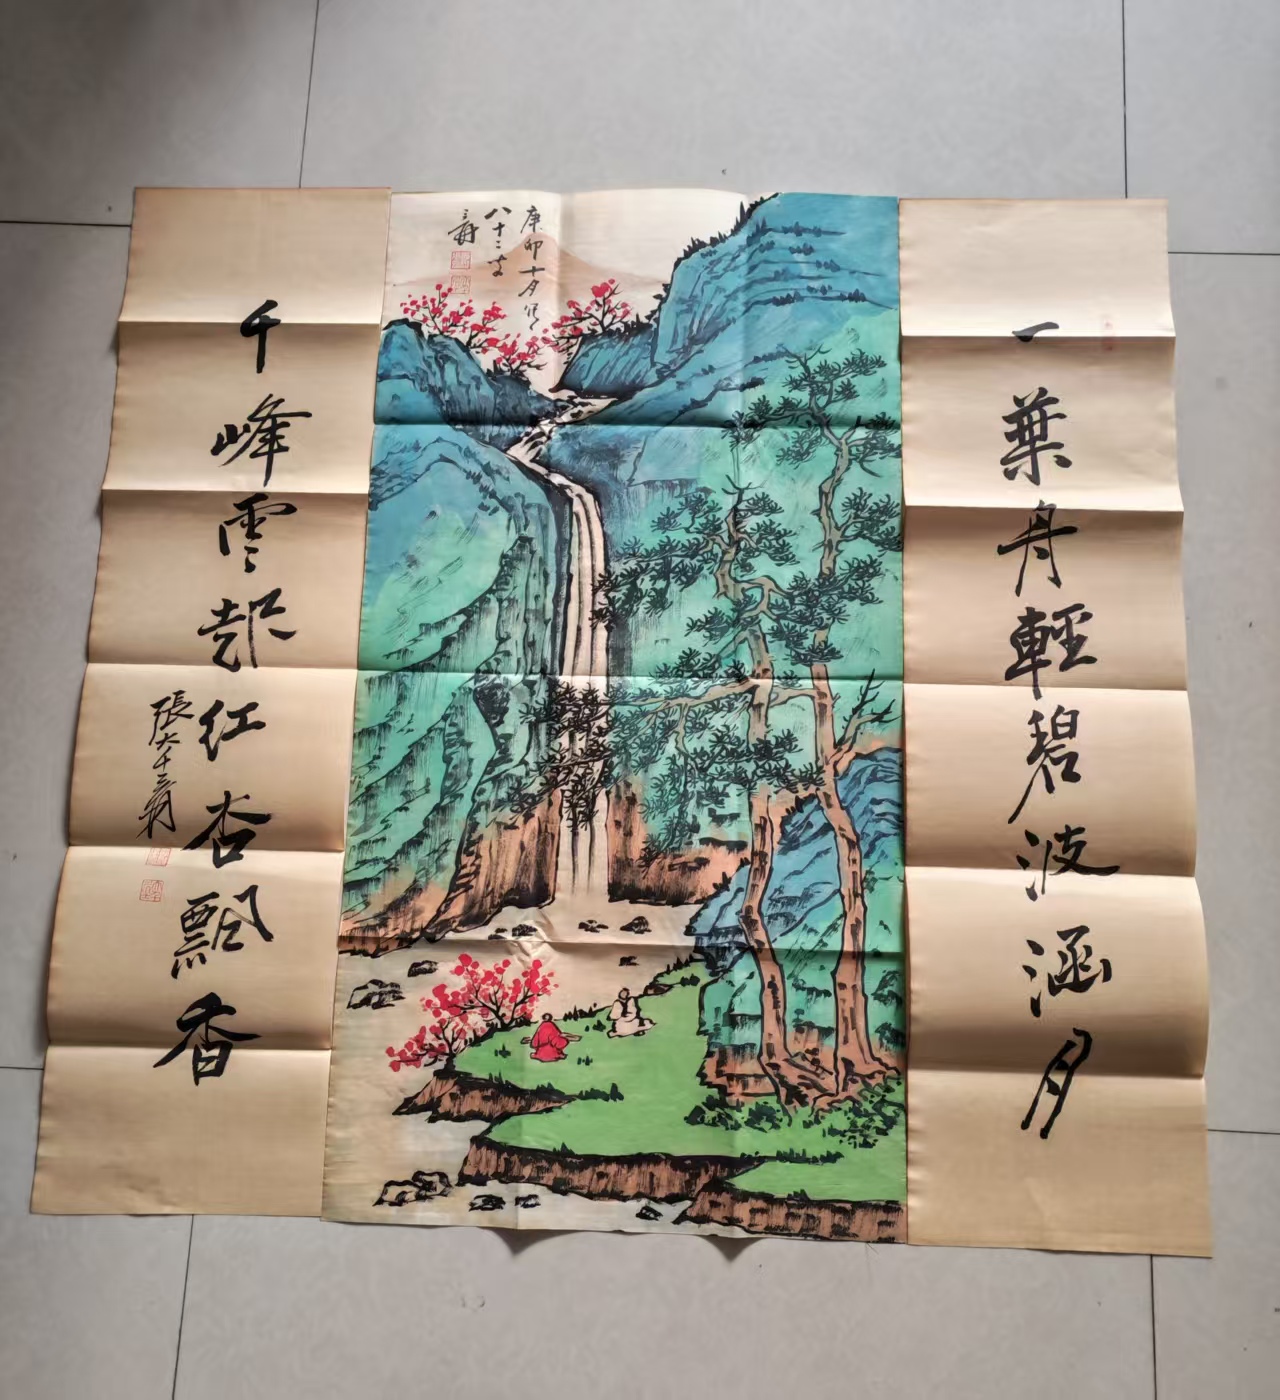 一葉舟輕碧波涵月
庚卯十月寫
八十二叟
爰
千峰雲起红杏飄香
張大千爰